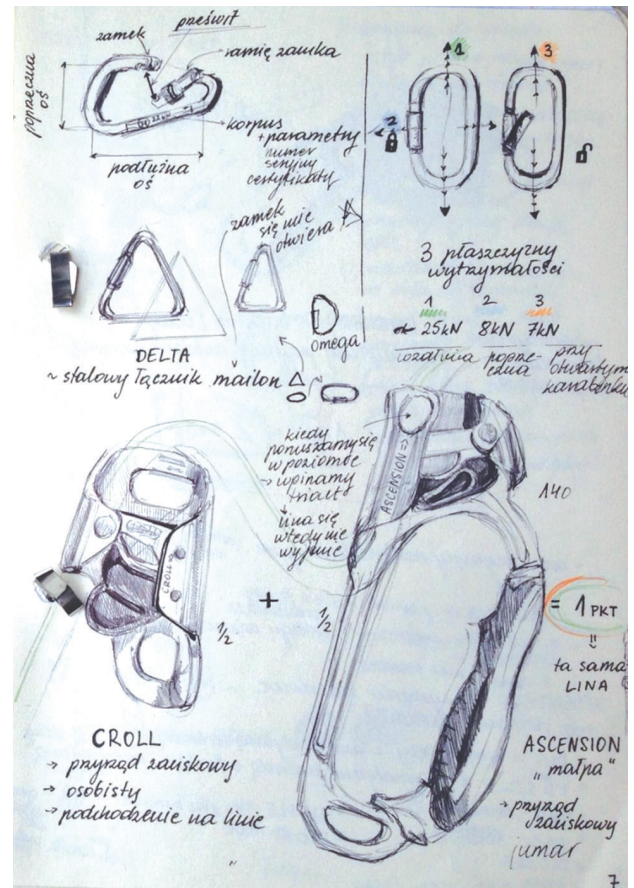 zamek
prześwit
ramię zamka
poprzeczna
oś
korpus
+parametry
numer
seryjny
certyfikaty
podłużna
oś
1
2
3
3 płaszczyzny
wytrzymałości
1 2 3
25kN 8kN 7kN
poprze-
czna
przy
otwartym
karabinku
zamek
się nie
otwiera
omega
DELTA
~ stalowy łącznik mailon
kiedy
poruszamy się
w poziomie
→ wpinamy
lina się
wtedy nie
wypnie
ASCENSION →
140
CROLL
1/2
+
1/2
= 1 PKT
=
ta sama
LINA
CROLL
→ przyrząd zaciskowy
→ osobisty
→ podchodzenie na linie
ASCENSION
„małpa"
→ przyrząd
zaciskowy
jumar
7